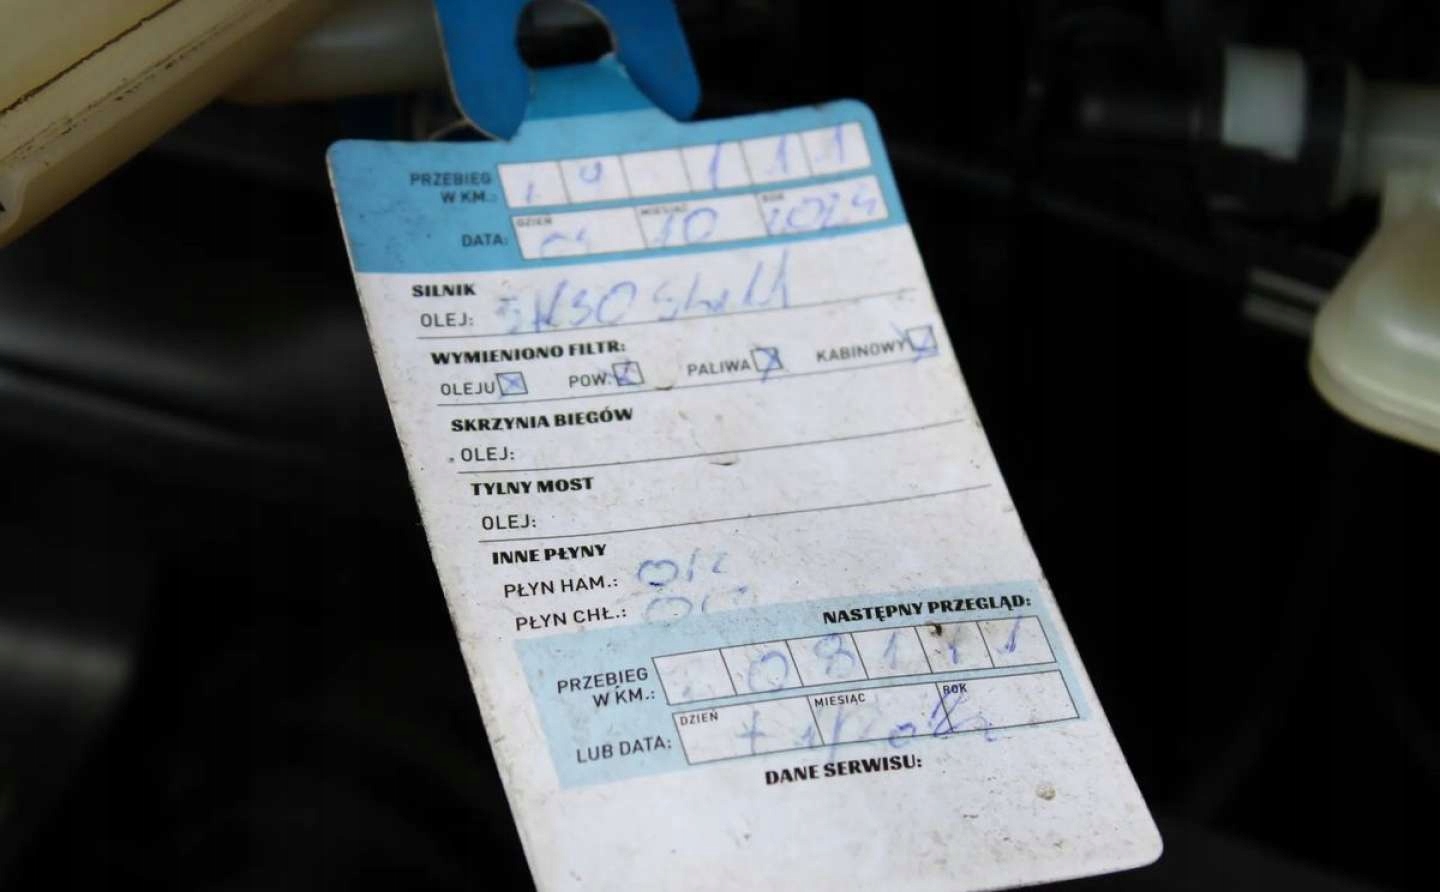 PRZEBIEG W KM.: 1 9 1 1 1
DZIEŃ MIESIĄC ROK
DATA: 10 2024
SILNIK
OLEJ: 5W30
WYMIENIONO FILTR:
OLEJU POW. PALIWA KABINOWY
SKRZYNIA BIEGÓW
OLEJ:
TYLNY MOST
OLEJ:
INNE PŁYNY
PŁYN HAM.: OK
PŁYN CHŁ.: OK
NASTĘPNY PRZEGLĄD:
PRZEBIEG W KM.: 0 8 1 1 1
DZIEŃ MIESIĄC ROK
LUB DATA:
DANE SERWISU: